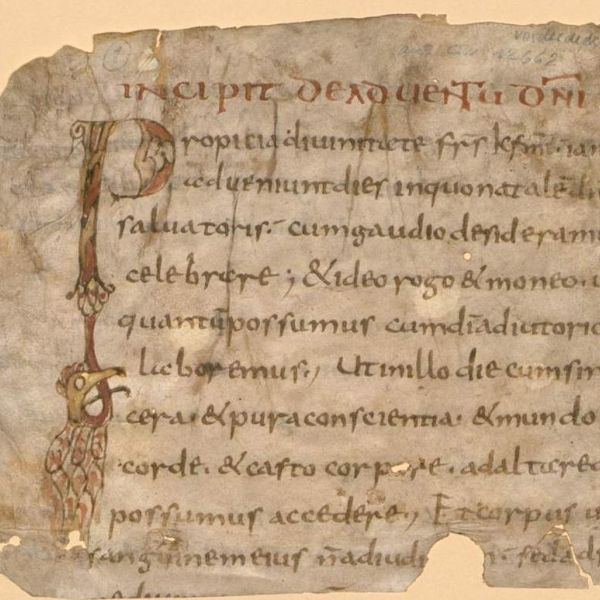 INCIPIT DE ADVENTU DNI
Propitia divinitate frs kms iam
adveniunt dies in quo natale di
salvatoris. cum gaudio desideram
celebrare; & ideo rogo & moneo.
quantu possumus cum di adiutorio
laboremus; Ut in illo die cum sin
cera. & pura conscientia. & mundo
corde. & casto corpore. ad altare
possumus accedere; Et corpus
sanguinem eius n ad iudi